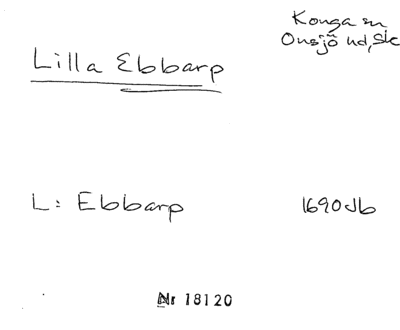 Konga sn
Onsjö hd, Sk
Lilla Ebbarp
L: Ebbarp 1690 Jb
Nr 18120